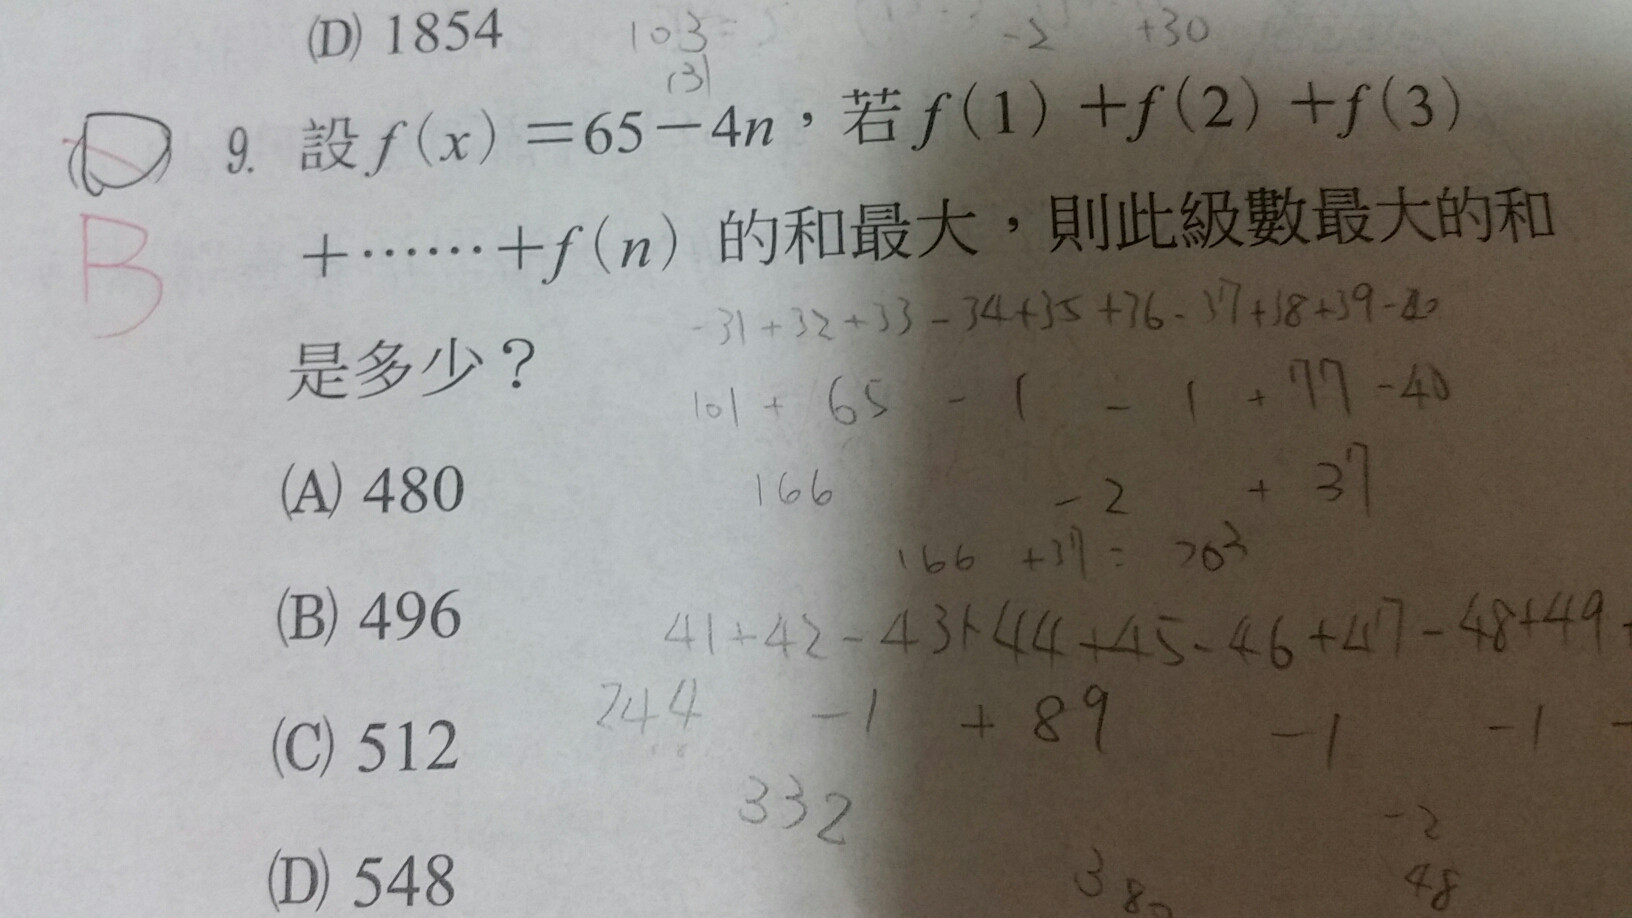 (D) 1854
103
-2 +30
131
9. 設 f(x)=65-4n,若 f(1)+f(2)+f(3)
B
+……+f(n) 的和最大,則此級數最大的和
-31+32+33-34+35+36-37+38+39-40
是多少?
101 + 65 - 1 - 1 + 77 -40
(A) 480
166 -2 + 37
166 +37 = 203
(B) 496
41+42-43+44+45-46+47-48+49
244 -1 + 89 -1 -1
(C) 512
332
-2
(D) 548
48